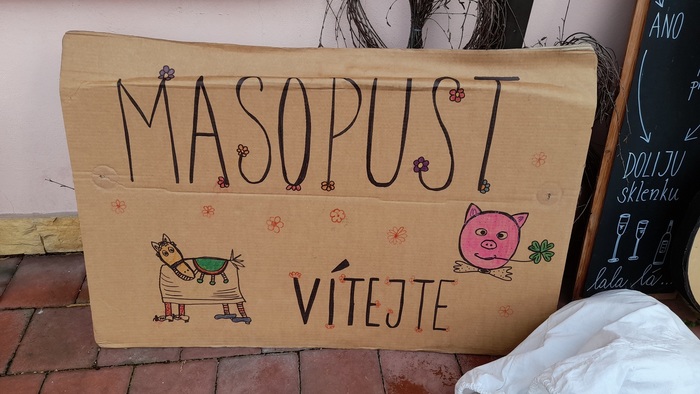 MASOPUST
VÍTEJTE
ANO
DOLIJU
sklenku
lala la...